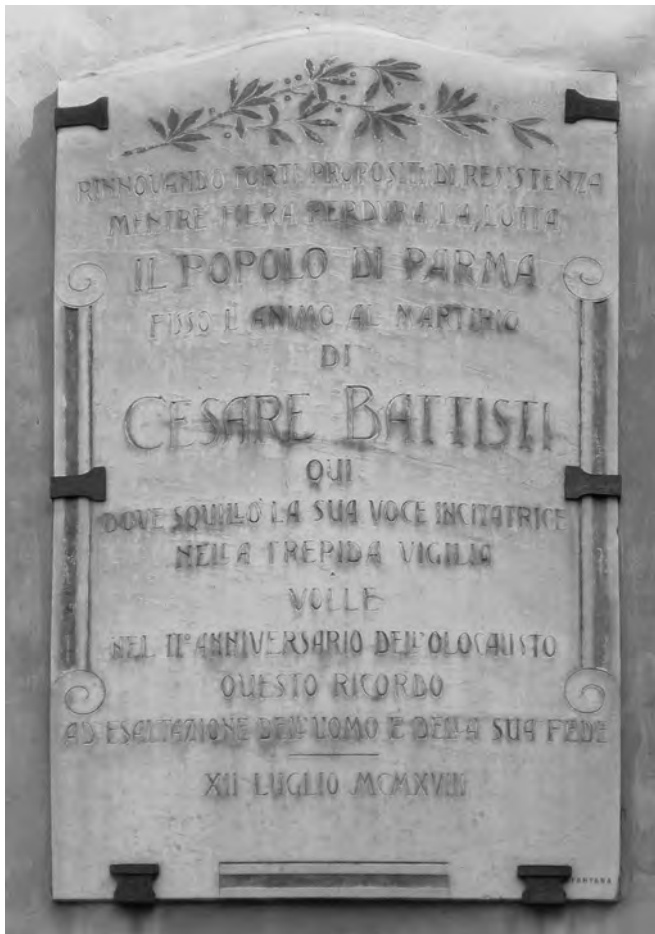 RINNOVANDO FORTI PROPOSITI DI RESISTENZA
MENTRE FIERA PERDURA LA LOTTA
IL POPOLO DI PARMA
FISSO L'ANIMO AL MARTIRIO
DI
CESARE BATTISTI
QUI
DOVE SQUILLÒ LA SUA VOCE INCITATRICE
NELLA TREPIDA VIGILIA
VOLLE
NEL II° ANNIVERSARIO DELL'OLOCAUSTO
QUESTO RICORDO
AD ESALTAZIONE DELL'UOMO E DELLA SUA FEDE
XII LUGLIO MCMXVIII